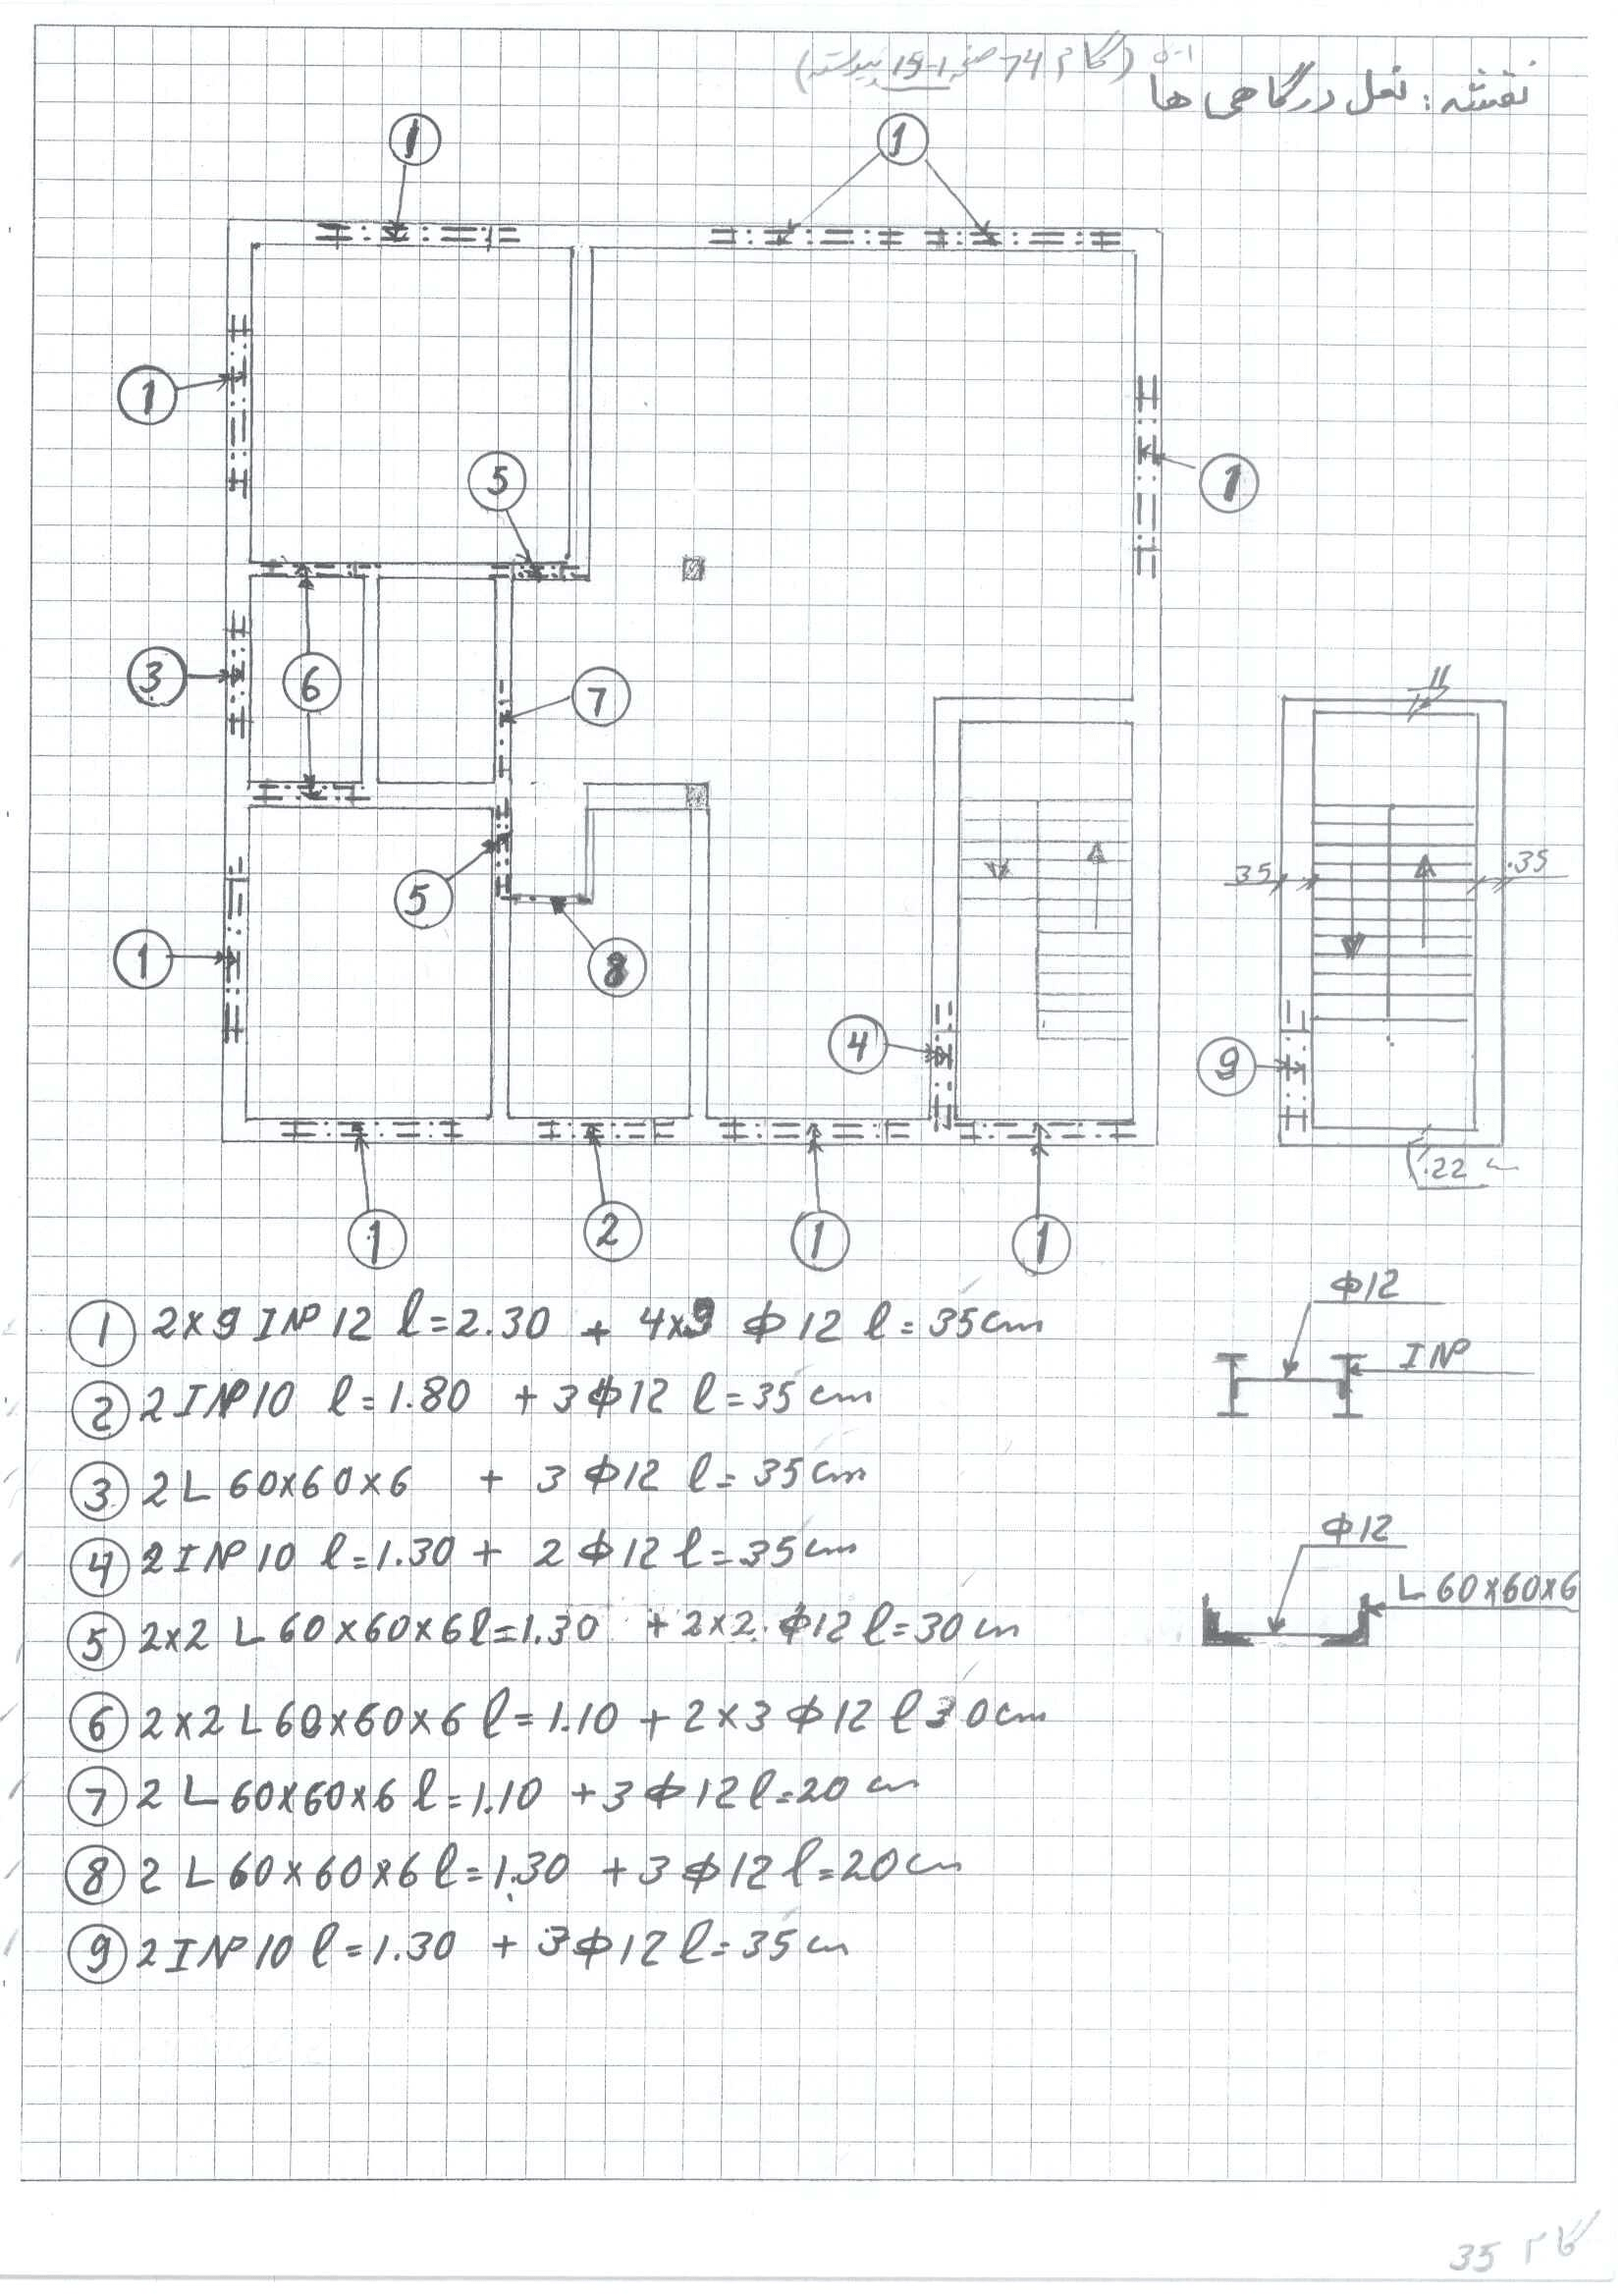 نقشه: نعل درگاهی ها
(گام 74 صفحه 1-15 پیوسته)
1
1
1
5
1
3
6
7
11
35
.35
5
1
8
4
9
.22 cm
1
2
1
1
① 2×9 INP 12 l=2.30 + 4×9 Φ 12 l=35cm
② 2INP10 l=1.80 + 3Φ12 l=35cm
③ 2L 60×60×6 + 3Φ12 l=35cm
④ 2INP10 l=1.30 + 2Φ12 l=35cm
⑤ 2×2 L 60×60×6 l=1.30 + 2×2 Φ12 l=30cm
⑥ 2×2 L 60×60×6 l=1.10 + 2×3 Φ12 l 30cm
⑦ 2 L 60×60×6 l=1.10 + 3Φ12 l=20cm
⑧ 2 L 60×60×6 l=1.30 + 3Φ12 l=20cm
⑨ 2INP10 l=1.30 + 3Φ12 l=35cm
Φ12
INP
Φ12
L 60×60×6
35 گام